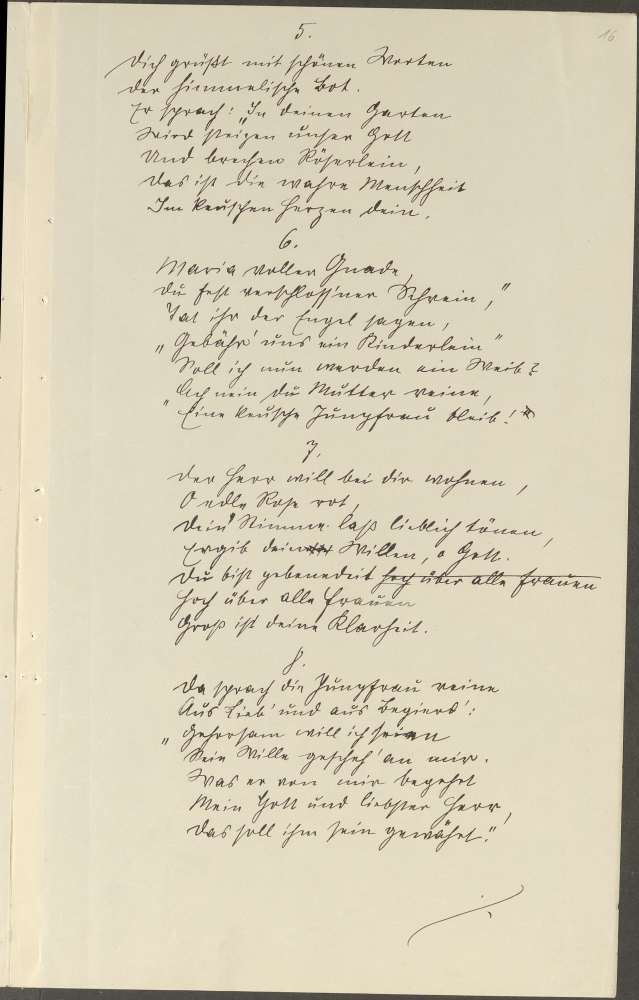 5.
16
Dich grüßt mit schönen Worten
Der himmelische Bot.
Er sprach: „In deinen Garten
Wird steigen unser Gott
Und brechen Röserlein,
Das ist die wahre Menschheit
Im keuschen Herzen dein.
6.
Maria voller Gnade,
Du fest verschloss'ner Schrein,"
Tat ihr der Engel sagen,
„Gebähr' uns ein Kinderlein"
Soll ich nun werden ein Weib?
„Ach nein du Mutter reine,
Eine keusche Jungfrau bleib!"
7.
Der Herr will bei dir wohnen,
O edle Rose rot,
Dein Stimme laß lieblich tönen,
Ergib dein Willen, o Gott.
Du bist gebenedeit hoch über alle Frauen
Hoch über alle Frauen
Groß ist deine Klarheit.
8.
Da sprach die Jungfrau reine
Aus Lieb' und aus Begierd':
„Gehorsam will ich seien
Sein Wille gescheh' an mir.
Was er von mir begehrt
Mein Gott und liebster Herr,
Das soll ihm sein gewährt."